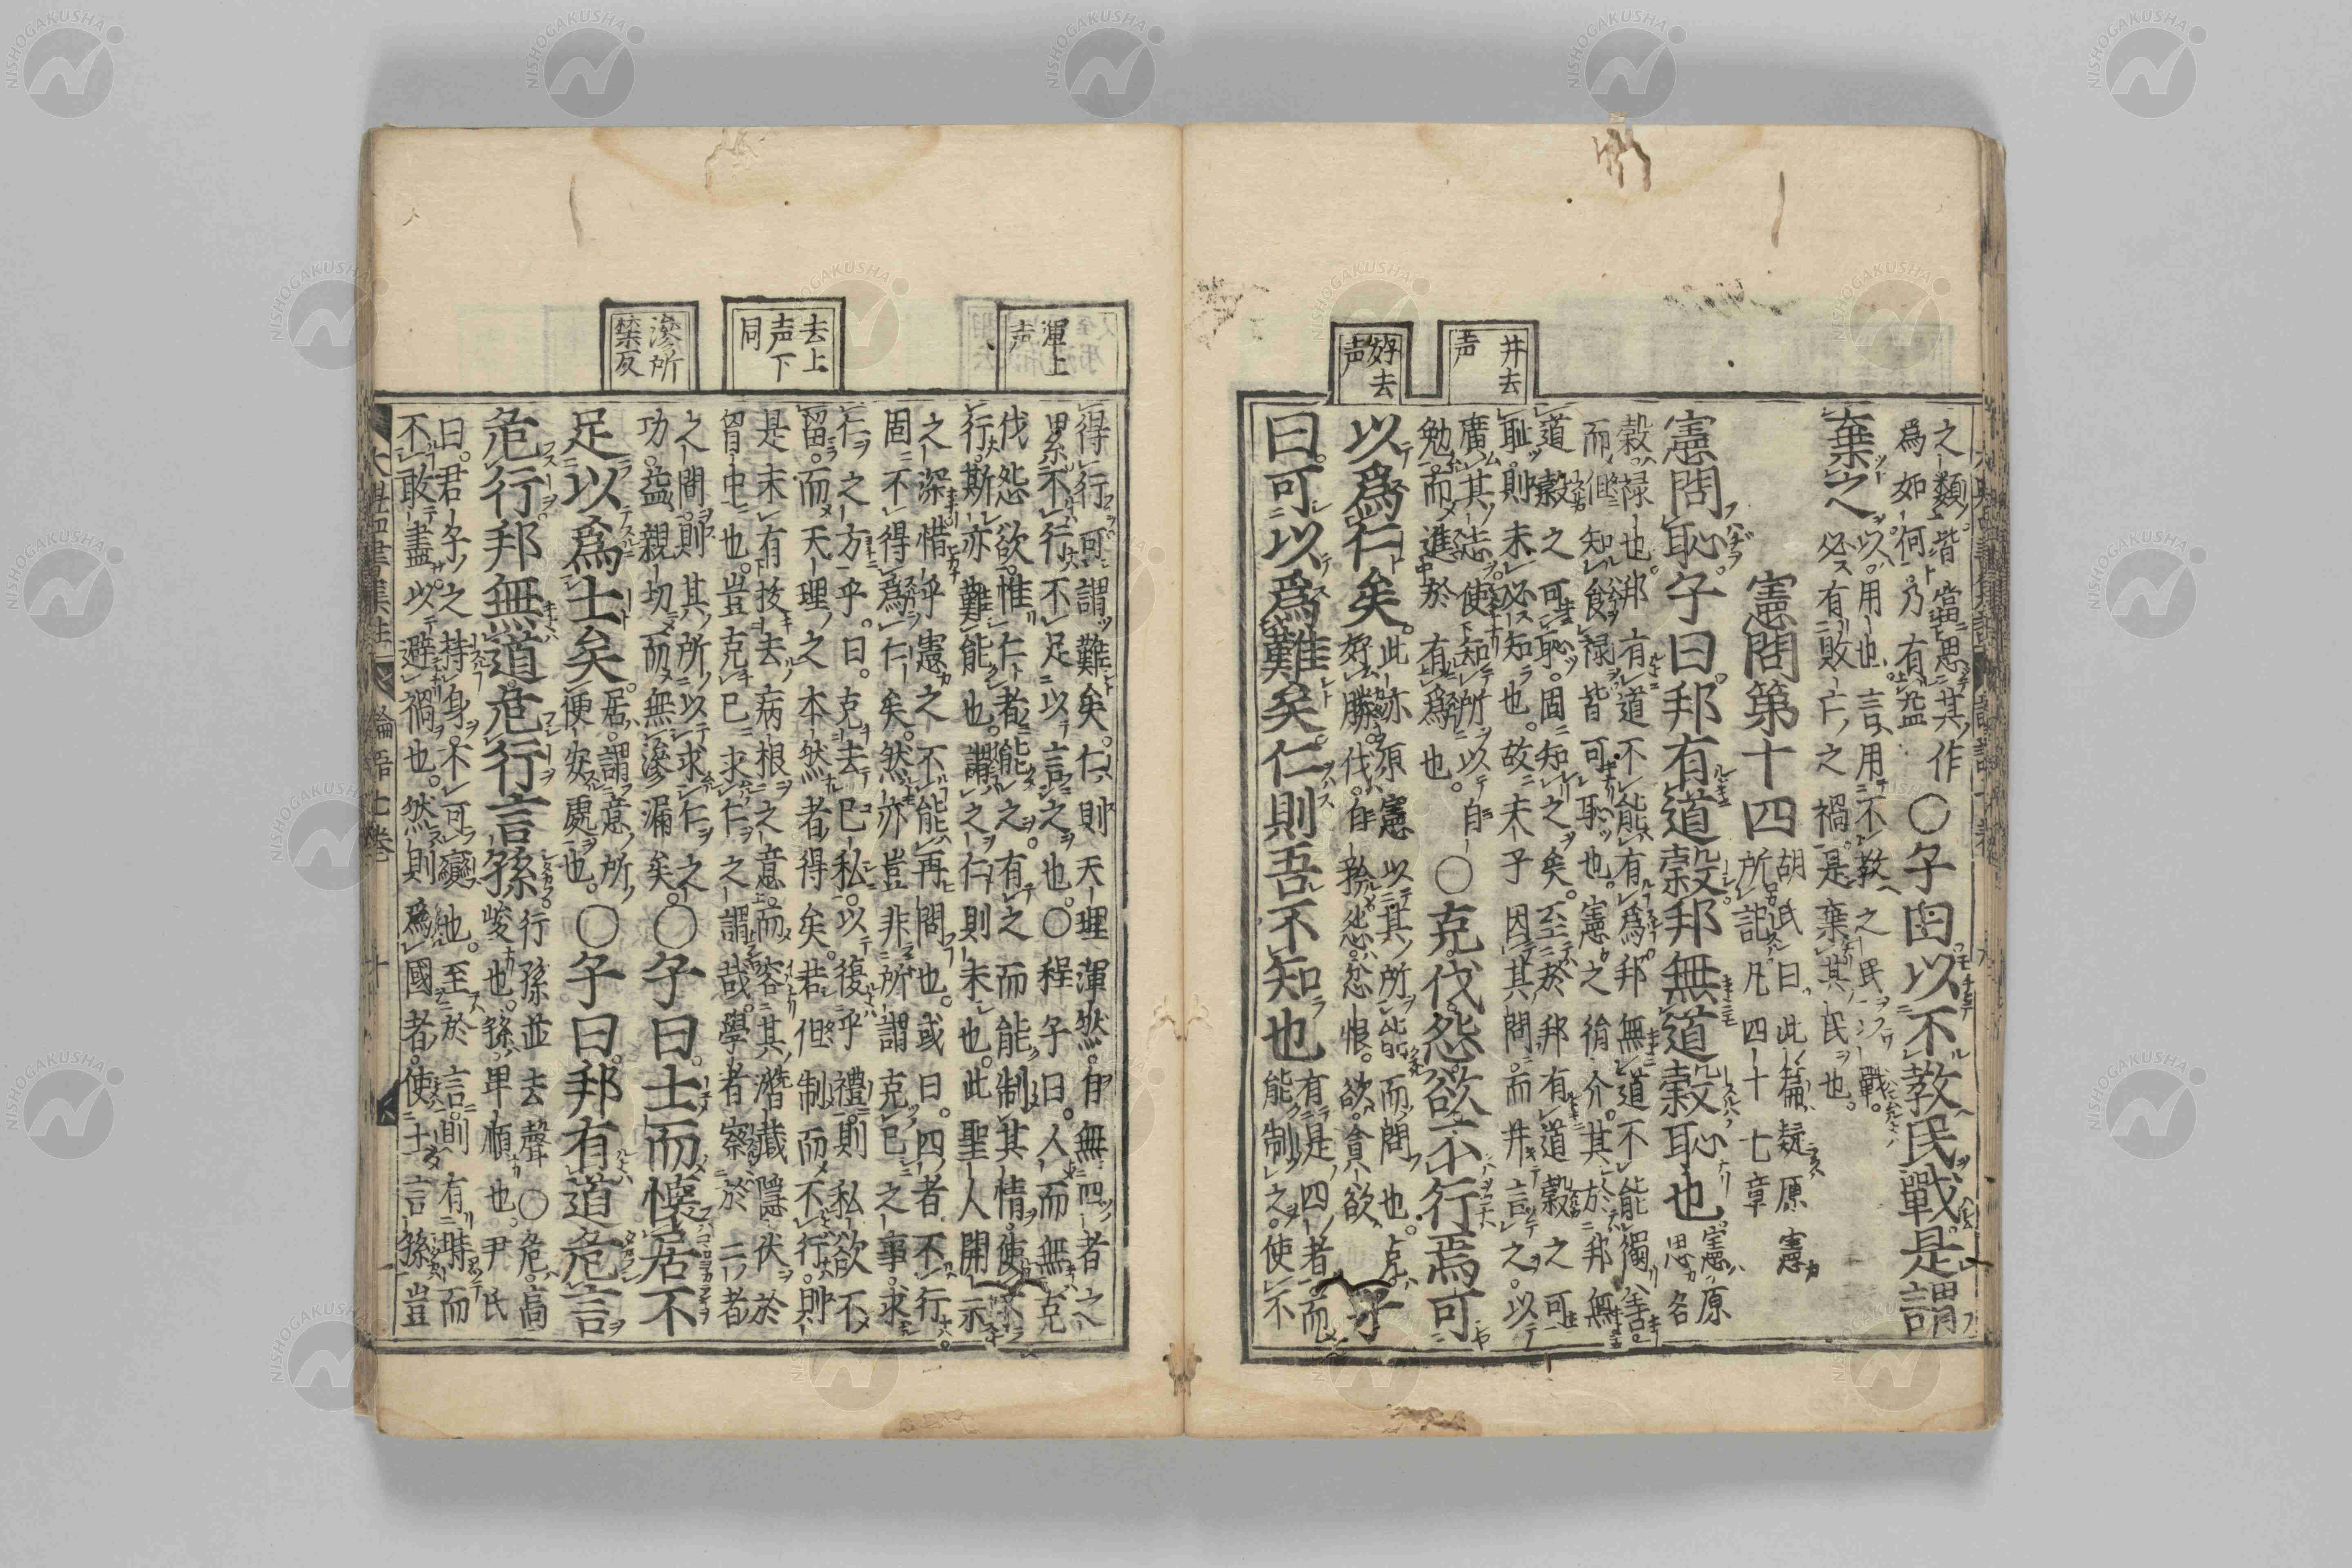 井去声
好去声
之類皆當思其作
爲如何乃有益
○子曰以不教民戰是謂
棄之
以用也言用不教之民以戰
必有敗亡之禍是棄其民也
憲問第十四
胡氏曰此篇疑原憲
所記凡四十七章
憲問恥子曰邦有道穀邦無道穀恥也
憲原
思名
穀祿也邦有道不能有爲邦無道不能獨善
而但知食祿皆可恥也憲之狷介其於邦無
道穀之可恥固知之矣至於邦有道穀之可
恥則未必知也故夫子因其問而并言之以
廣其志使知所以自
勉而進於有爲也
○克伐怨欲不行焉可
以爲仁矣
此亦原憲以其所能而問也克
好勝伐自矜怨忿恨欲貪欲
子
曰可以爲難矣仁則吾不知也
有是四者而
能制之使不
渾上声
去上声下同
滲所禁反
得行可謂難矣仁則天理渾然自無四者之
累不行不足以言之也○程子曰人而無克
伐怨欲惟仁者能之有之而能制其情使不
行斯亦難能也謂之仁則未也此聖人開示
之深惜乎憲之不能再問也或曰四者不行
固不得爲仁矣然亦豈非所謂克己之事求
仁之方乎曰克去己私以復乎禮則私欲不
留而天理之本然者得矣若但制而不行則
是未有拔去病根之意而容其潛藏隱伏於
胷中也豈克己求仁之謂哉學者察於二者
之間則其所以求仁之
功益親切而無滲漏矣
○子曰士而懷居不
足以爲士矣
居謂意所
便安處也
○子曰邦有道危言
危行邦無道危行言孫
行孫並去聲○危高
峻也孫卑順也尹氏
曰君子之持身不可變也至於言則有時而
不敢盡以避禍也然則爲國者使士言孫豈
論語七卷
十
NISHOGAKUSHA